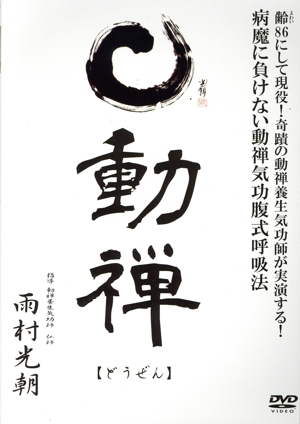 齢86にして現役！奇蹟の動禅養生気功師が実演する！
よわい
病魔に負けない動禅気功腹式呼吸法
動禅
【どうぜん】
指導 動禅養生気功師
雨村光朝
DVD
VIDEO